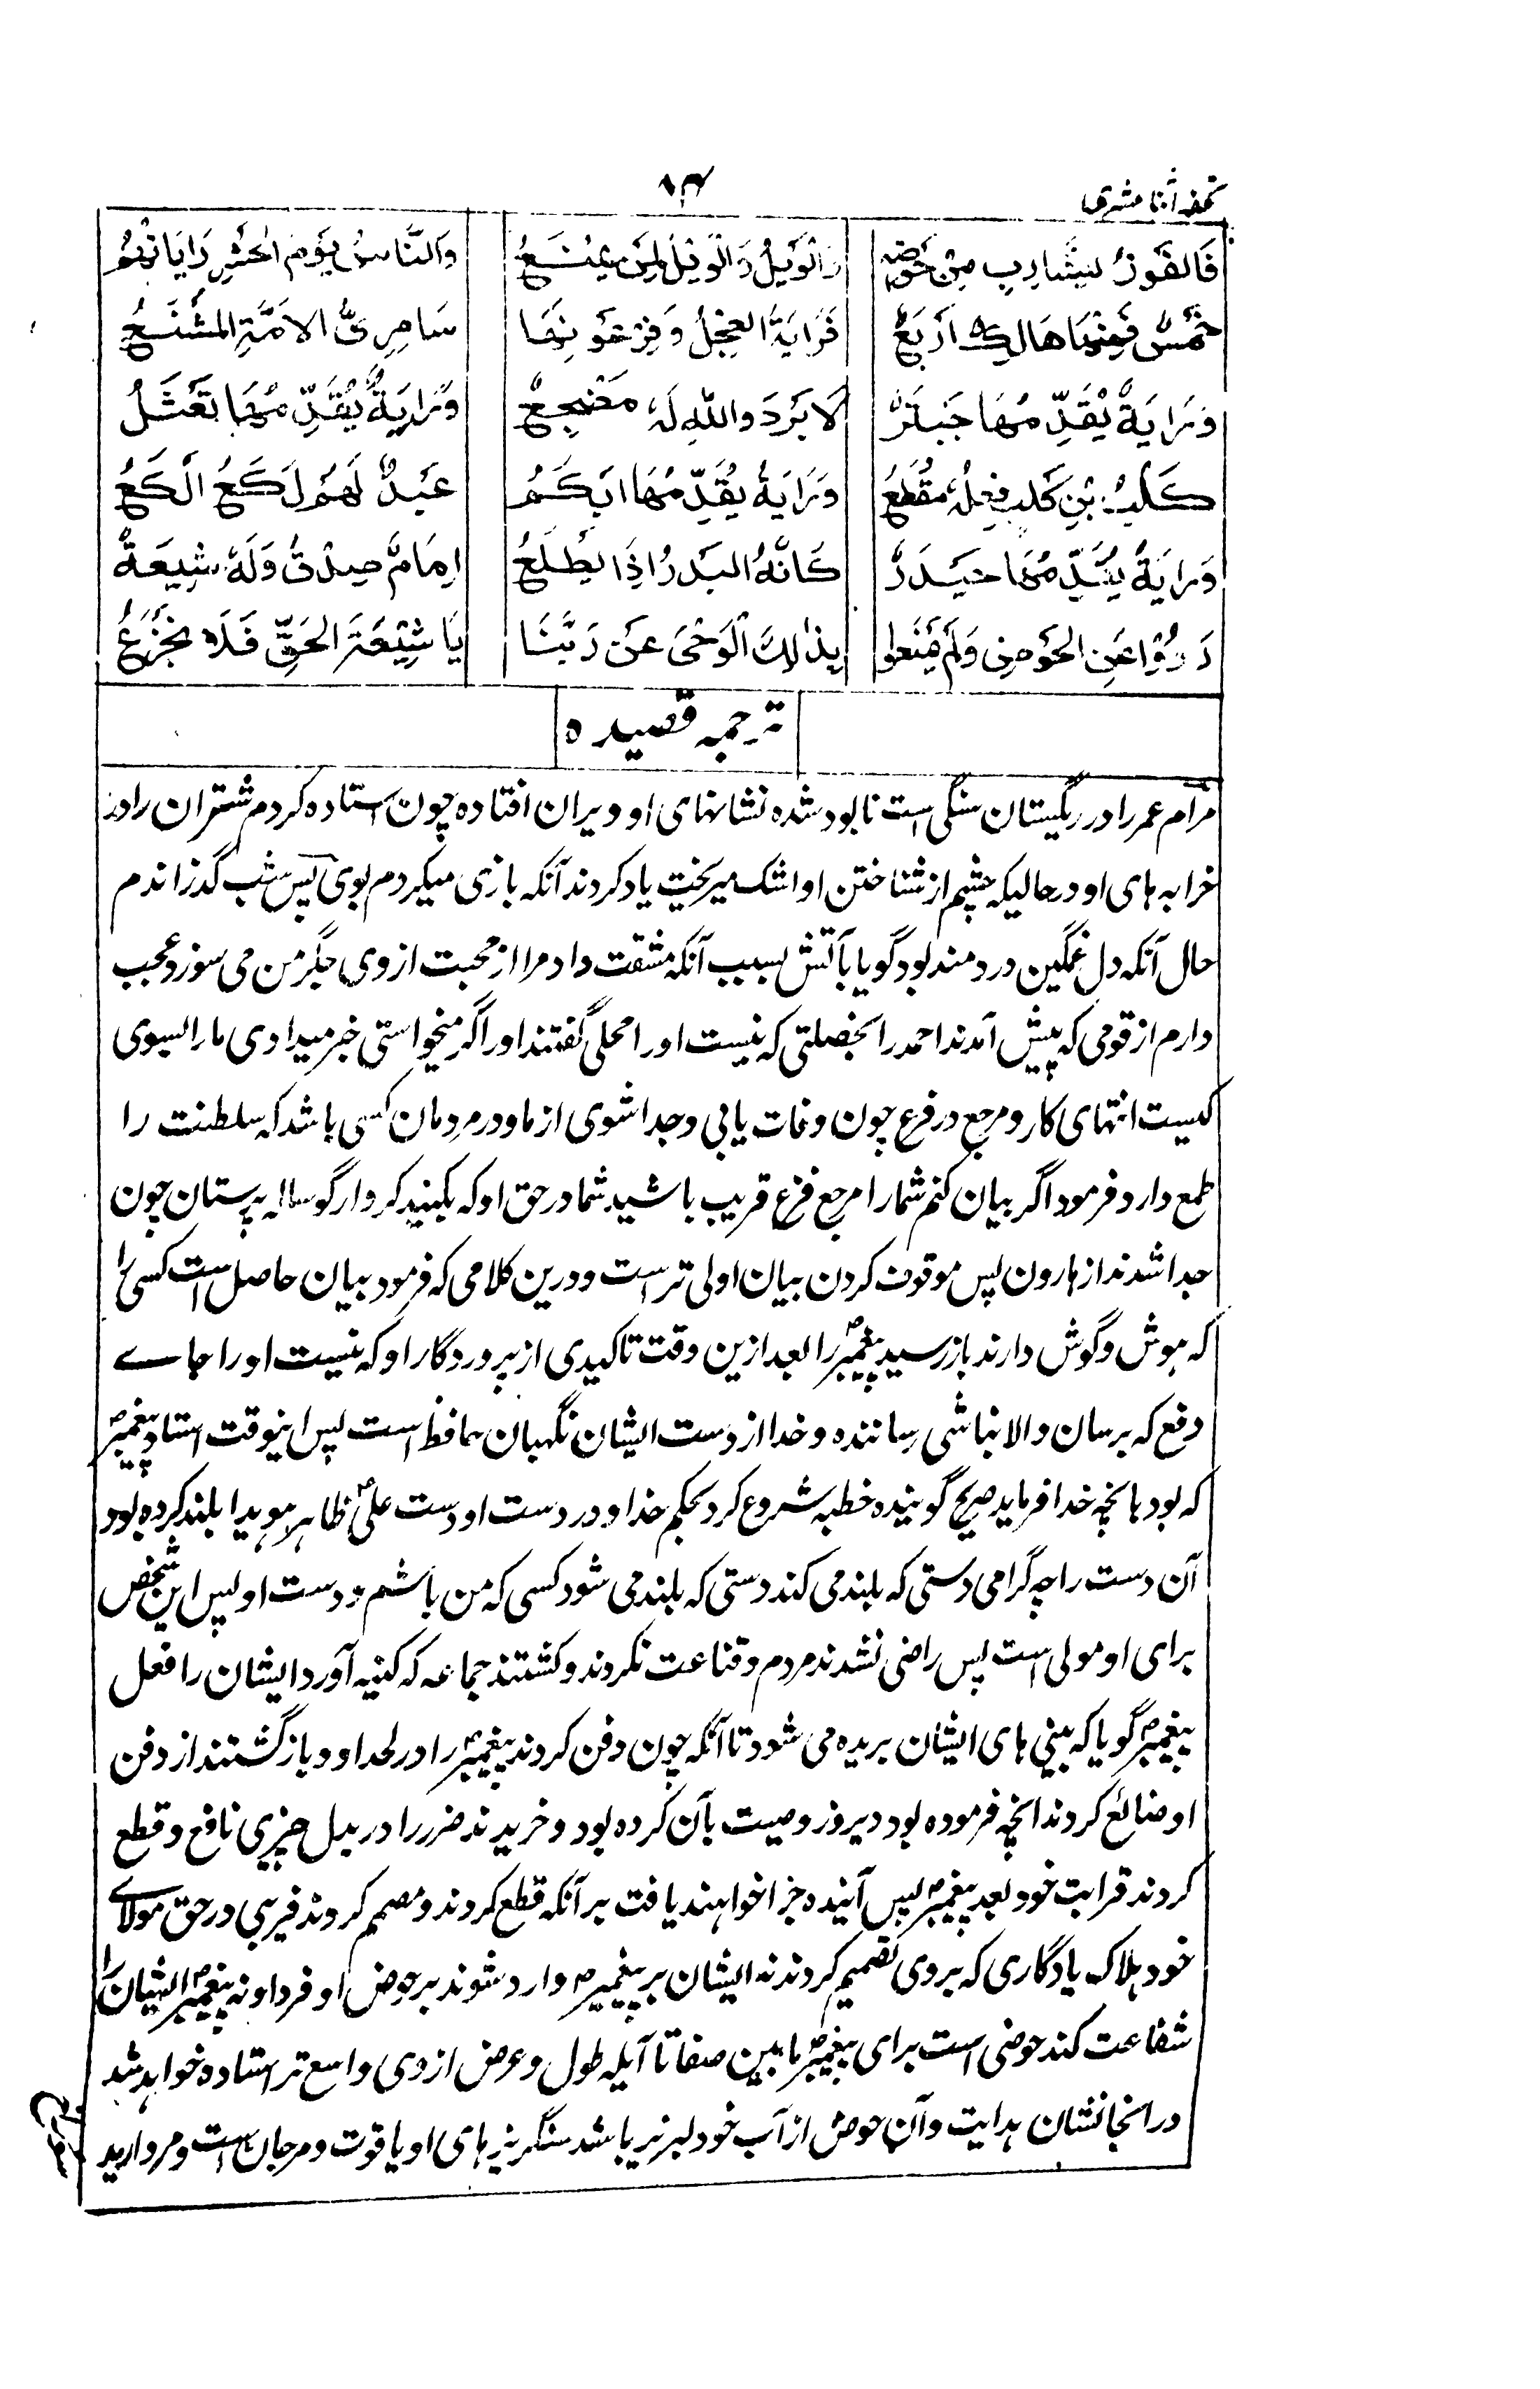 تحفه اثنا عشری
فَالفَوزُ لِشَارِبٍ مِن حَوضِه وَالْوَيلُ وَالْوَيلُ لِمَن يُمنَعُ وَالنَّاسُ يَومَ الحَشرِ رَايَاتُهُم
خَمسٌ فَمِنهَا هَالِكٌ اَربَعٌ فَرَايَةُ العِجلُ وَفِرعَونهَا سَامِرِىُّ الاُمَّةِ المُشنَعُ
وَرَايَةٌ يُقَدِّمُهَا حَبتَرٌ لَا بَرَدَ واللهِ لَهُ مَضجِعٌ وَرَايَةٌ يُقَدِّمُهَا نَعثَلُ
كَلبُ بنِ كَلبٍ فِعلُهُ مُقطَعُ وَرَايَةٌ يُقَدِّمُهَا ابكَمُ عَبدٌ لَهُم لَكعُ الَكعُ
وَرَايَةٌ يُقَدِّمُهَا حَيدَرٌ كَانَّهُ البَدرُ اِذَا يطلعُ اِمَامُ صِدْقٍ وَلَهُ شِيعَةٌ
رَوُوْا عَنِ الحَوضِ وَلَم يُمنَعُوا بِذٰلِكَ الْوَحْىَ عَن رَبِّنَا يَا شِيْعَةَ الحَقِّ فَلَا تجزَعُ
ترجمه قصيده
مر ام عمر را در ریگستان سنگی است نابود شده نشانهای او ویران افتاده چون استاده کردم شتران را در
خرابه های او در حالیکه چشم از شناختن او اشک میریخت یاد کردند آنکه بازی میکردم بوی پس شب گذراندم
حال آنکه دل غمگین دردمند بود گویا بآتش بسبب آنکه مشقت داد مرا از محبت از وی جگر من می سوزد عجب
دارم از قومی که پیش آمدند احمد را بخصلتی که نیست او را محلی گفتند او را اگر میخواستی خبر میدادی ما را بسوی
کیست انتهای کار و مرجع در فزع چون وفات یابی و جدا شوی از ما و در مردمان کسی باشد که سلطنت را
طمع دارد فرمود اگر بیان کنم شما را مرجع فزع قریب باشید شما در حق او که بکنید کردار گوساله پرستان چون
جدا شدند از هارون پس موقوف کردن بیان اولی تر است و درین کلامی که فرمود بیان حاصل است کسی را
که هوش و گوش دارند باز رسید پیغمبرؐ را بعد ازین وقت تاکیدی از پروردگار او که نیست او را جاے
دفع که برسان و الا نباشی رساننده و خدا از دست ایشان نگهبان محافظ است پس اینوقت استاد پیغمبرؐ
که بود بانچه خدا فرماید صریح گوینده خطبه شروع کرد بحکم خدا و در دست او دست علیؑ ظاهر هویدا بلند کرده بود
آن دست را چه گرامی دستی که بلند می کند دستی که بلند می شود کسی که من باشم دوست او پس این شخص
برای او مولی است پس راضی نشدند مردم و قناعت نکردند و کشتند جماعه که کینه آورد ایشان را فعل
پیغمبرؐ گویا که بینی های ایشان بریده می شود تا آنکه چون دفن کردند پیغمبرؐ را در لحد او و باز گشتند از دفن
او ضائع کردند انچه فرموده بود دیروز وصیت بآن کرده بود و خریدند ضرر را در بدل چیزی نافع و قطع
کردند قرابت خود بعد پیغمبرؐ پس آینده جزا خواهند یافت بر آنکه قطع کردند و مصمم کردند فریبی در حق مولاے
خود هلاک یادگاری که بروی تصمیم کردند نه ایشان بر پیغمبرؐ وارد شوند بر حوض او فردا و نه پیغمبرؐ ایشان را
شفاعت کند حوضی است برای پیغمبرؐ مابین صنعا تا آیله طول و عرض از وی واسع تر استاده خواهد شد
در انجا نشان هدایت و آن حوض از آب خود لبریز باشد سنگریزه های او یاقوت و مرجان است و مروارید